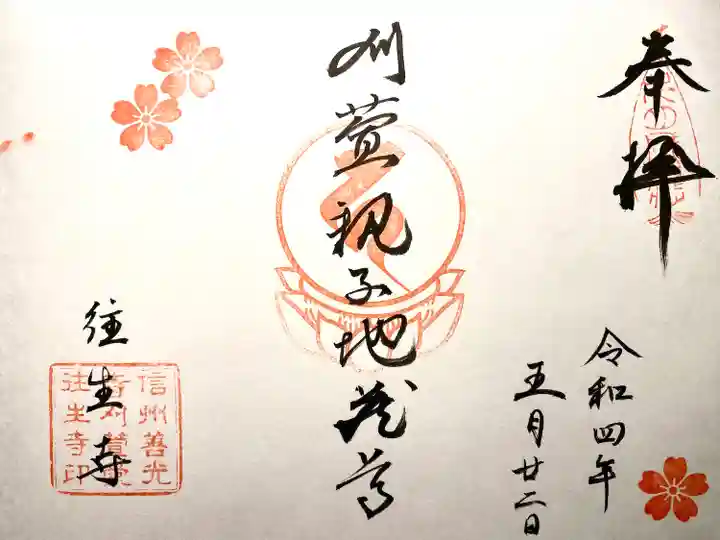 奉拝
令和四年
五月廿二日
刈萱親子地蔵尊
往生寺
信州善光
寺刈萱堂
往生寺印